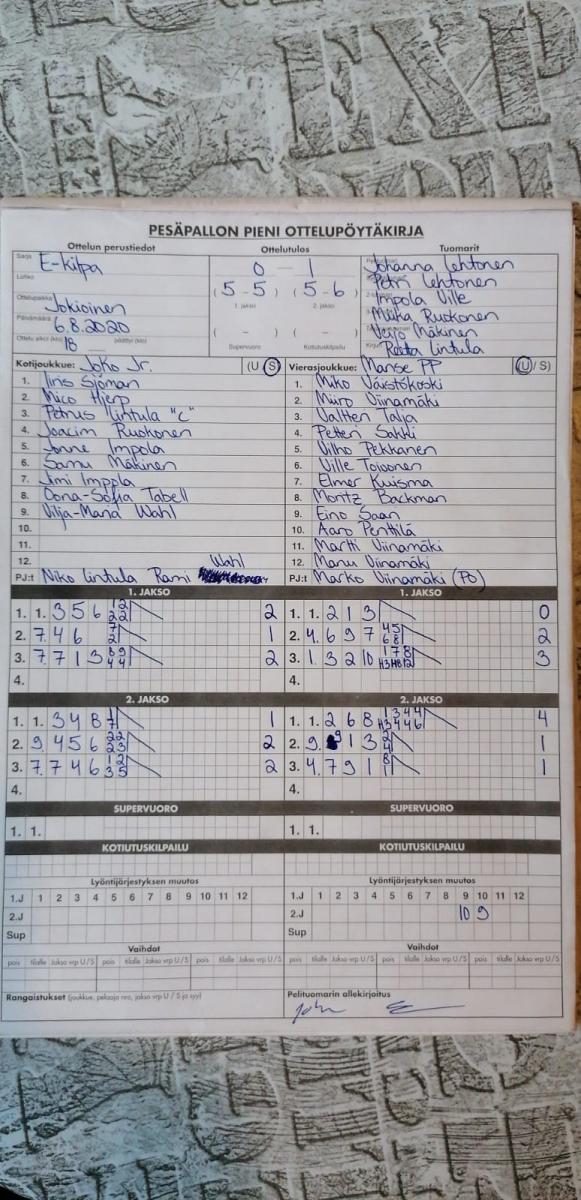 PESÄPALLON PIENI OTTELUPÖYTÄKIRJA
Ottelun perustiedot Ottelutulos Tuomarit
Sarja E-kilpa 0 - 1 Johanna Lehtonen
Lohko (5-5) (5-6) Petri Lehtonen
1. jakso 2. jakso Impola Ville
Ottelupaikka Jokioinen Miika Ruokonen
Päivämäärä 6.8.2020 ( - ) ( - ) Mäkinen
Ottelu alkoi (klo) 18 päättyi (klo) Supervuoro Kotiutuskilpailu Reeta Lintula
Kotijoukkue: Joko Jr. (U/S) Vierasjoukkue: Manse PP (U/S)
1. Iiris Sjöman 1. Miko Väistökoski
2. Mico Hjerp 2. Miiro Viinamäki
3. Petrus Lintula "C" 3. Valtteri Talja
4. Joacim Ruokonen 4. Petteri Sakki
5. Jonne Impola 5. Vilho Pekkanen
6. Samu Mäkinen 6. Ville Toivonen
7. Jimi Imppola 7. Elmer Kuisma
8. Oona-Sofia Tabell 8. Moritz Backman
9. Vilja-Maria Wahl 9. Eino Saari
10. 10. Aaro Penttilä
11. 11. Martti Viinamäki
12. Wahl 12. Manu Viinamäki
PJ:t Niko Lintula Rami PJ:t Marko Viinamäki (PO)
1. JAKSO 1. JAKSO
1. 1. 3 5 6 12 22 2 1. 1. 2 1 3 0
2. 7. 4 6 7 2 1 2. 4. 6 9 7 45 68 2
3. 7. 7 1 3 89 44 2 3. 1. 3 2 10 1 7 8 H3 H8 12 3
4. 4.
2. JAKSO 2. JAKSO
1. 1. 3 4 8 1 7 1 1. 1. 2 6 8 1 3 4 4 H3 4 4 6 4
2. 9. 4 5 6 22 23 2 2. 9. 9 1 3 2 4 1
3. 7. 7 4 6 12 35 2 3. 4. 7 9 1 8 1 1
4. 4.
SUPERVUORO SUPERVUORO
1. 1. 1. 1.
KOTIUTUSKILPAILU KOTIUTUSKILPAILU
Lyöntijärjestyksen muutos Lyöntijärjestyksen muutos
1.J 1 2 3 4 5 6 7 8 9 10 11 12 1.J 1 2 3 4 5 6 7 8 9 10 11 12
2.J 2.J 10 9
Sup Sup
Vaihdot Vaihdot
pois tilalle Jakso vrp U/S pois tilalle Jakso vrp U/S pois tilalle Jakso vrp U/S pois tilalle Jakso vrp U/S pois tilalle Jakso vrp U/S pois tilalle Jakso vrp U/S
Rangaistukset (joukkue, pelaaja nro, jakso vrp U / S ja syy) Pelituomarin allekirjoitus